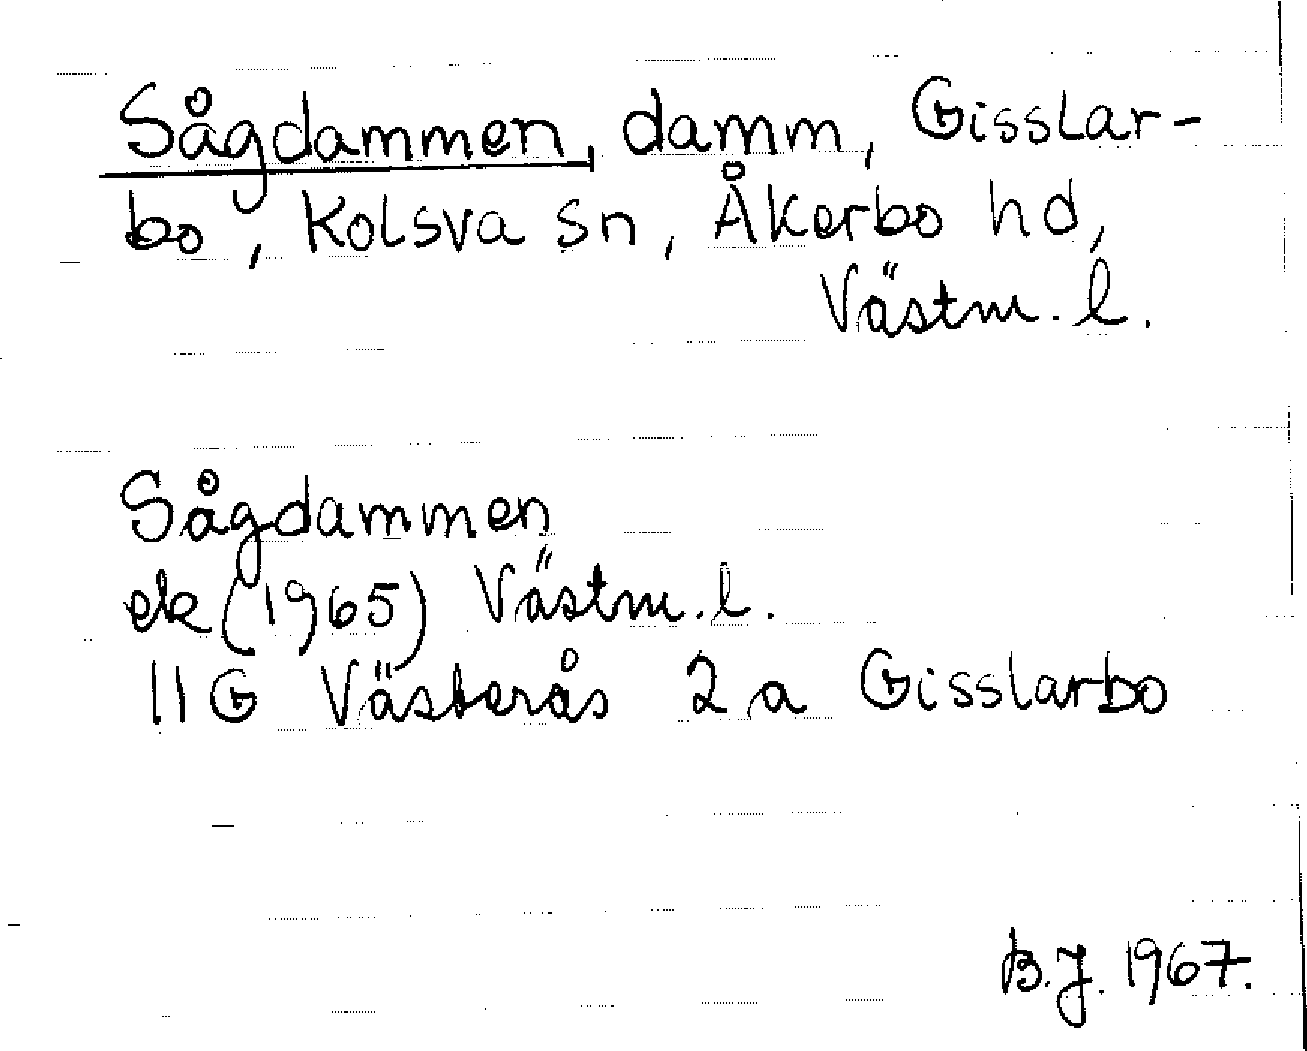 Sågdammen, damm, Gisslar-
bo, Kolsva sn, Åkerbo hd,
Västm. l.
Sågdammen
ek (1965) Västm. l.
11G Västerås 2 a Gisslarbo
B.J. 1967.